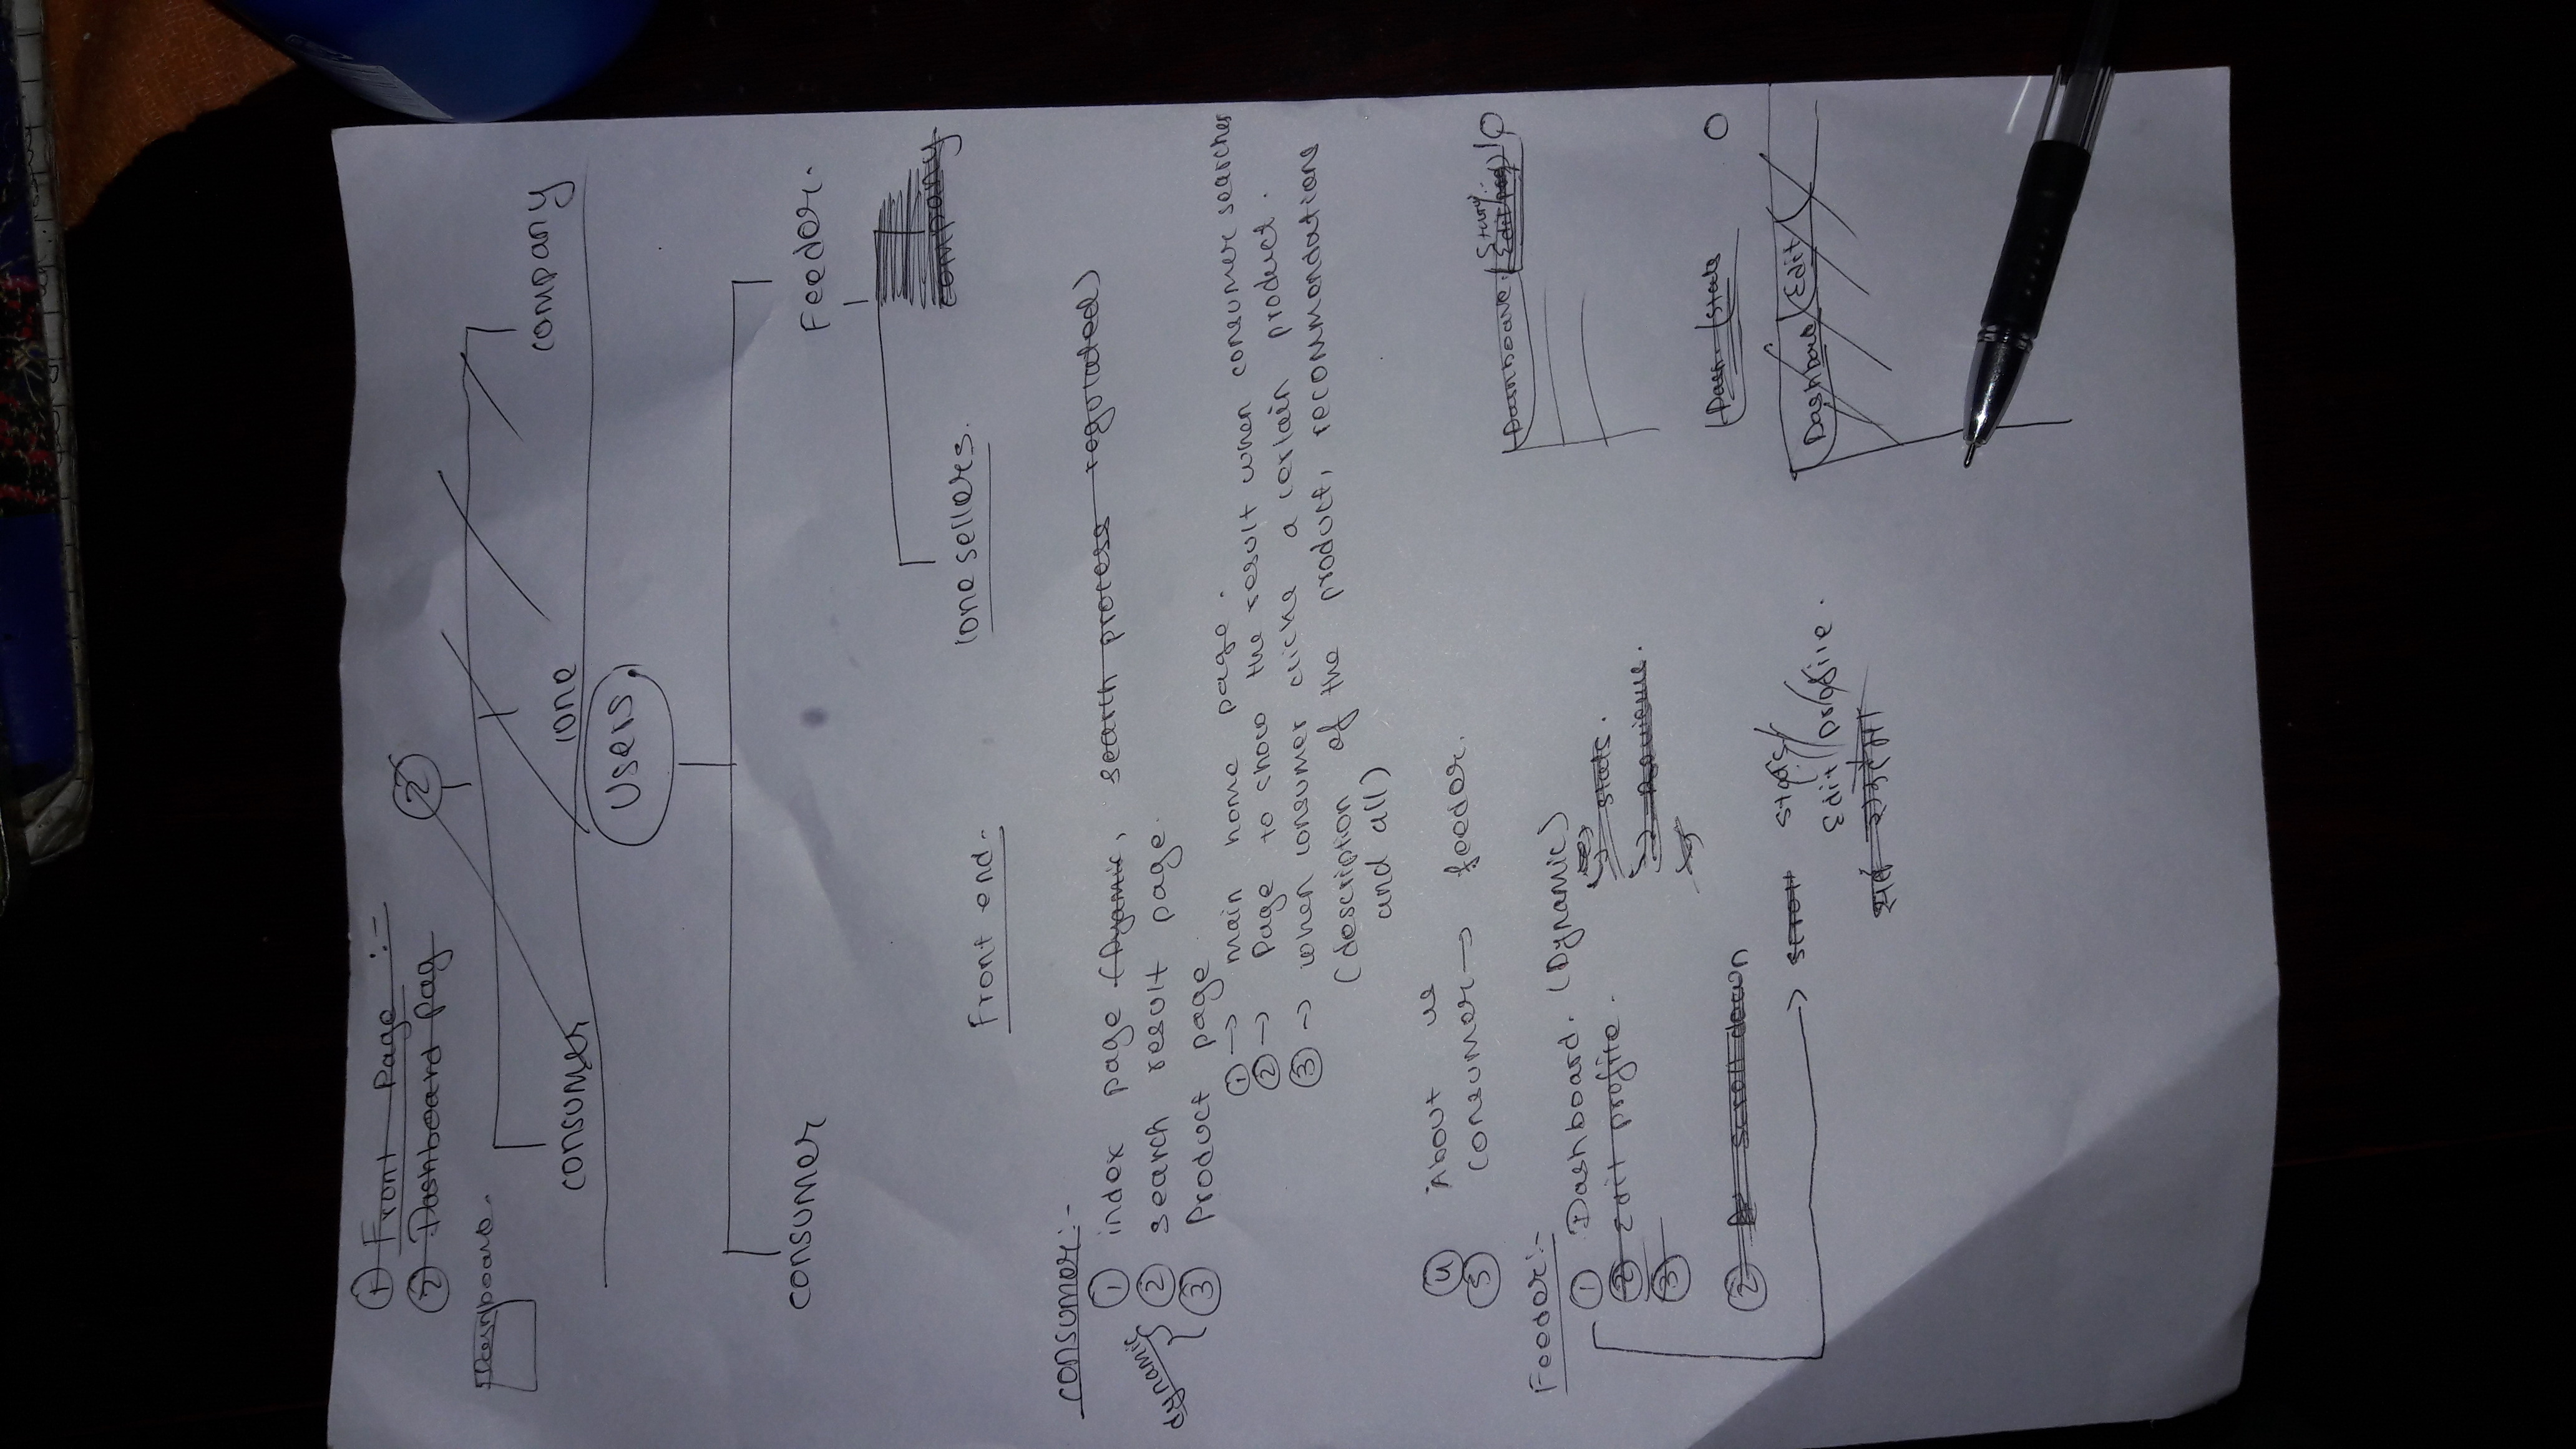 ① Front Page :-
② Dashboard Pag
Dashboard.
2
consumer
lone
company
Users.
consumer
Feeder.
lone sellers.
company
Front end.
consumer:-
① index page (Dyamic, search process regulated)
dynamic
② search result page.
③ Product page
① → main home page.
② → Page to show the result when consumer searches
③ → when consumer clicks a certain product.
(description of the product, recommendations
and all)
④ About us
⑤ consumer → feeder.
Feeder:-
① Dashboard. (Dynamic)
② Edit profile.
→ stats.
③
② scroll down
→ scroll stats
Edit profile.
Dash. stats
Dashboard Edit